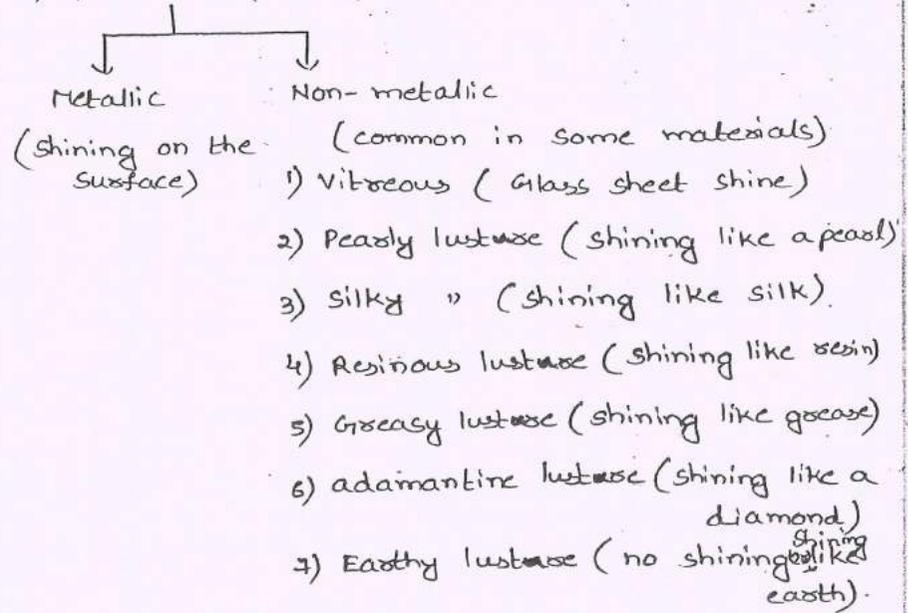 Metallic
(shining on the
surface)
Non-metallic
(common in some materials)
1) Vitreous (Glass sheet shine)
2) Pearly lusture (shining like a pearl)
3) Silky " (shining like silk).
4) Resinous lusture (shining like resin)
5) Greasy lusture (shining like grease)
6) adamantine lusture (shining like a
diamond)
7) Earthy lusture (no shining shining like
earth).